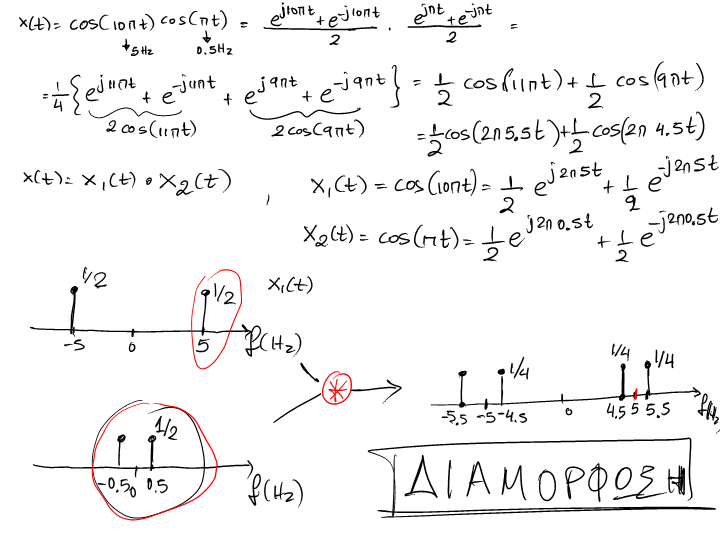 x(t) = cos(10πt) cos(πt) = (e^{j10πt} + e^{-j10πt})/2 · (e^{jπt} + e^{-jπt})/2 =
↓5Hz ↓0.5Hz
= 1/4 {e^{j11πt} + e^{-j11πt} + e^{j9πt} + e^{-j9πt}} = 1/2 cos(11πt) + 1/2 cos(9πt)
2cos(11πt) 2cos(9πt) = 1/2 cos(2π 5.5t) + 1/2 cos(2π 4.5t)
x(t) = x₁(t) · x₂(t) , x₁(t) = cos(10πt) = 1/2 e^{j2π5t} + 1/2 e^{-j2π5t}
x₂(t) = cos(πt) = 1/2 e^{j2π0.5t} + 1/2 e^{-j2π0.5t}
1/2 1/2 x₁(t)
-5 0 5 f(Hz)
*
1/4 1/4 1/4
-5.5 -5 -4.5 0 4.5 5 5.5 f(Hz)
1/2
-0.5 0 0.5 f(Hz)
ΔΙΑΜΟΡΦΩΣΗ